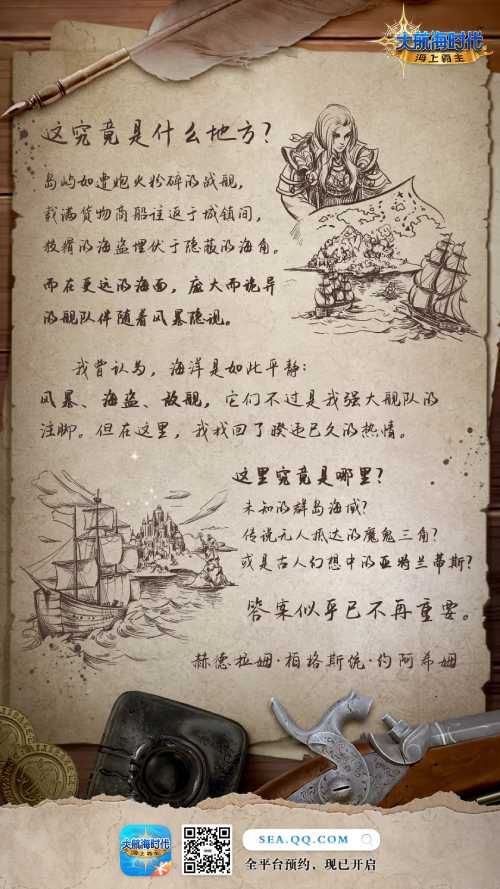 大航海时代
海上霸主
这究竟是什么地方？
岛屿如遭炮火粉碎的战舰，
载满货物商船往返于城镇间，
狡猾的海盗埋伏于隐蔽的海角。
而在更远的海面，庞大而诡异
的舰队伴随着风暴隐现。
我曾认为，海洋是如此平静：
风暴、海盗、敌舰，它们不过是我强大舰队的
注脚。但在这里，我找回了睽违已久的热情。
这里究竟是哪里？
未知的群岛海域？
传说无人抵达的魔鬼三角？
或是古人幻想中的亚特兰蒂斯？
答案似乎已不再重要。
赫德拉姆·柏格斯统·约阿希姆
大航海时代
海上霸主
SEA.QQ.COM
全平台预约，现已开启